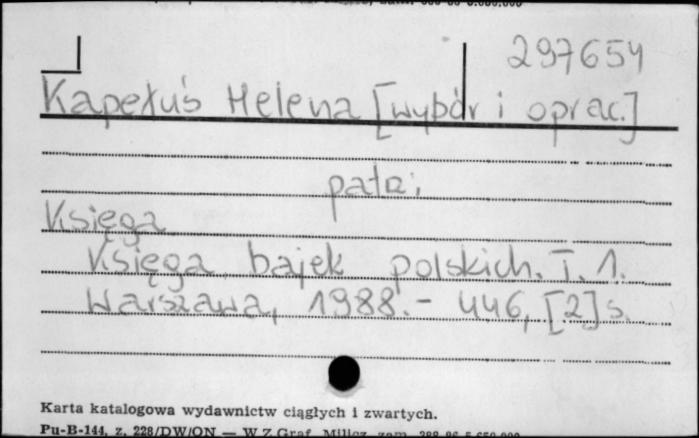 297654
Kapełuś Helena [wybór i oprac.]
patrz:
Księga
Księga bajek polskich. T. 1.
Warszawa, 1988.- 446, [2] s.
Karta katalogowa wydawnictw ciągłych i zwartych.
Pu-B-144, z. 228/DW/ON — W Z Graf. Milicz, zam.